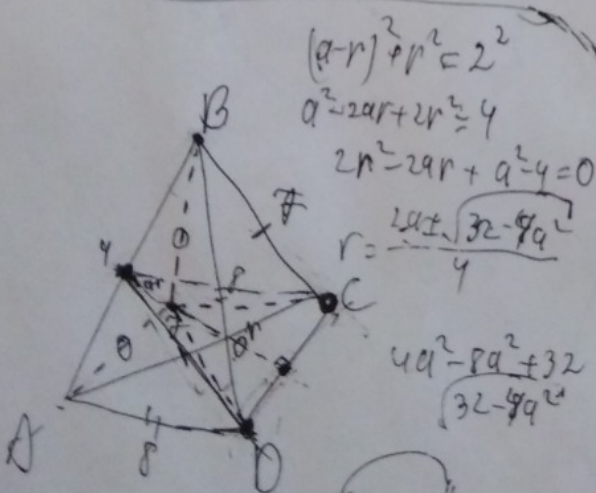 (a-r)²+r²=2²
a²-2ar+2r²=4
2r²-2ar+a²-4=0
r=(2a±√(32-4a²))/4
4a²-8a²+32
√(32-4a²)
B
7
4
8
C
r
A
8
D